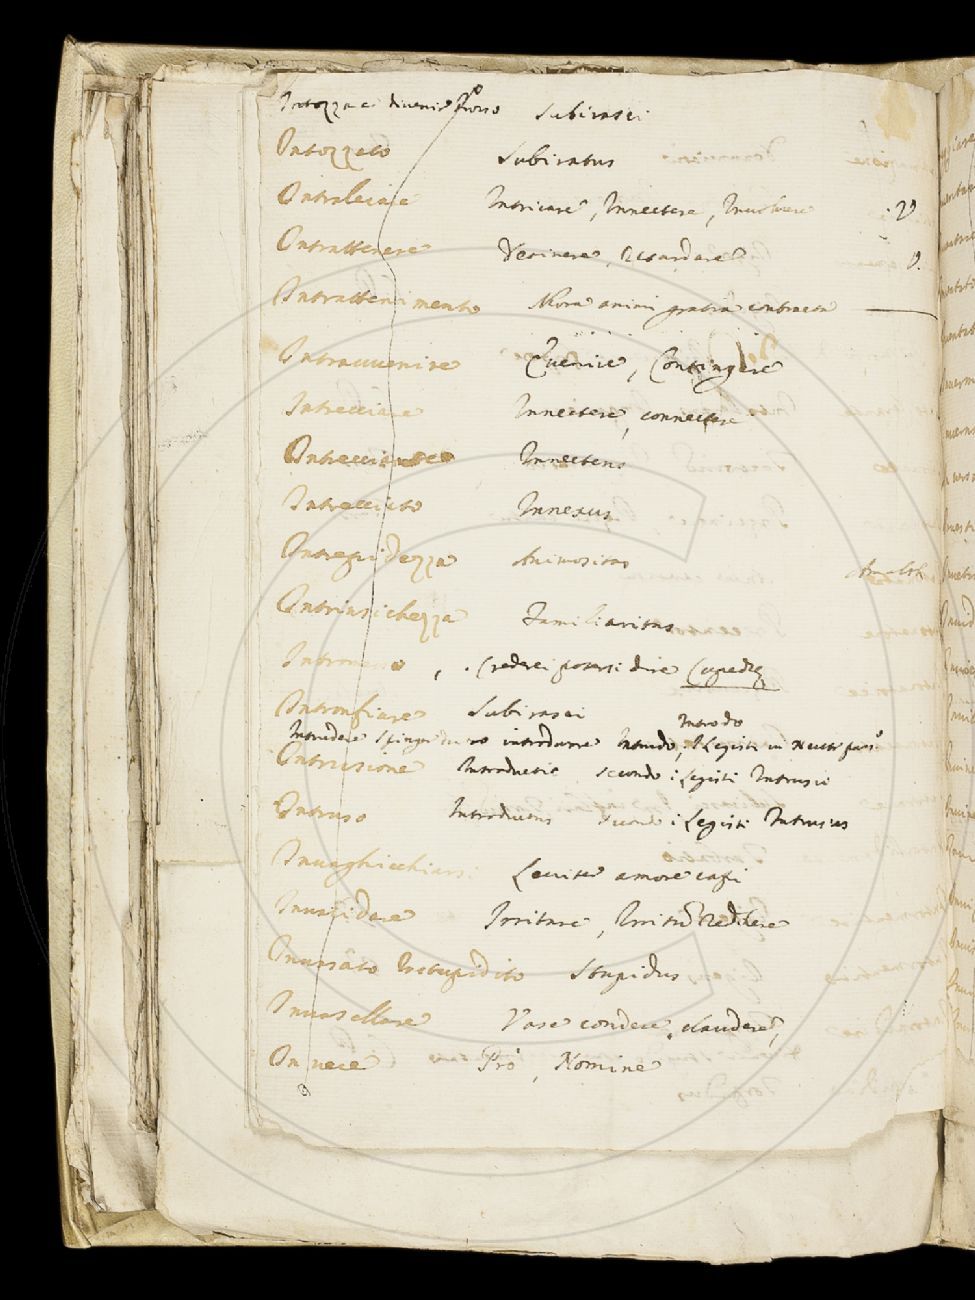 Intozzare divenir Subirasci
Intozzato Subiratus
Intralciare Intricare, Innectere, Involvere V
Intrattenere Detinere, Retardare V.
Intrattenimento Mora animi gratia contracta
Intravvenire Evenire, Contingere
Intrecciare Innectere, connectere
Innectens
Intrecciato Innexus
Intrepidezza Animositas
Intrinsichezza Familiaritas
Credesi potersi dire
Intronfiare Subirasci Introdo
Intrudere introdurre Intrudo, i Legisti in
Intrusione Introductio secondo i Legisti Intrusio
Intruso Introductus secondo i Legisti Intrusus
Invaghicchiarsi Leviter amore capi
Invalidare Irritare, Irritum Reddere
Invasato Istupidito Stupidus
Invasellare Vase condere, claudere,
In vece Pro, Nomine